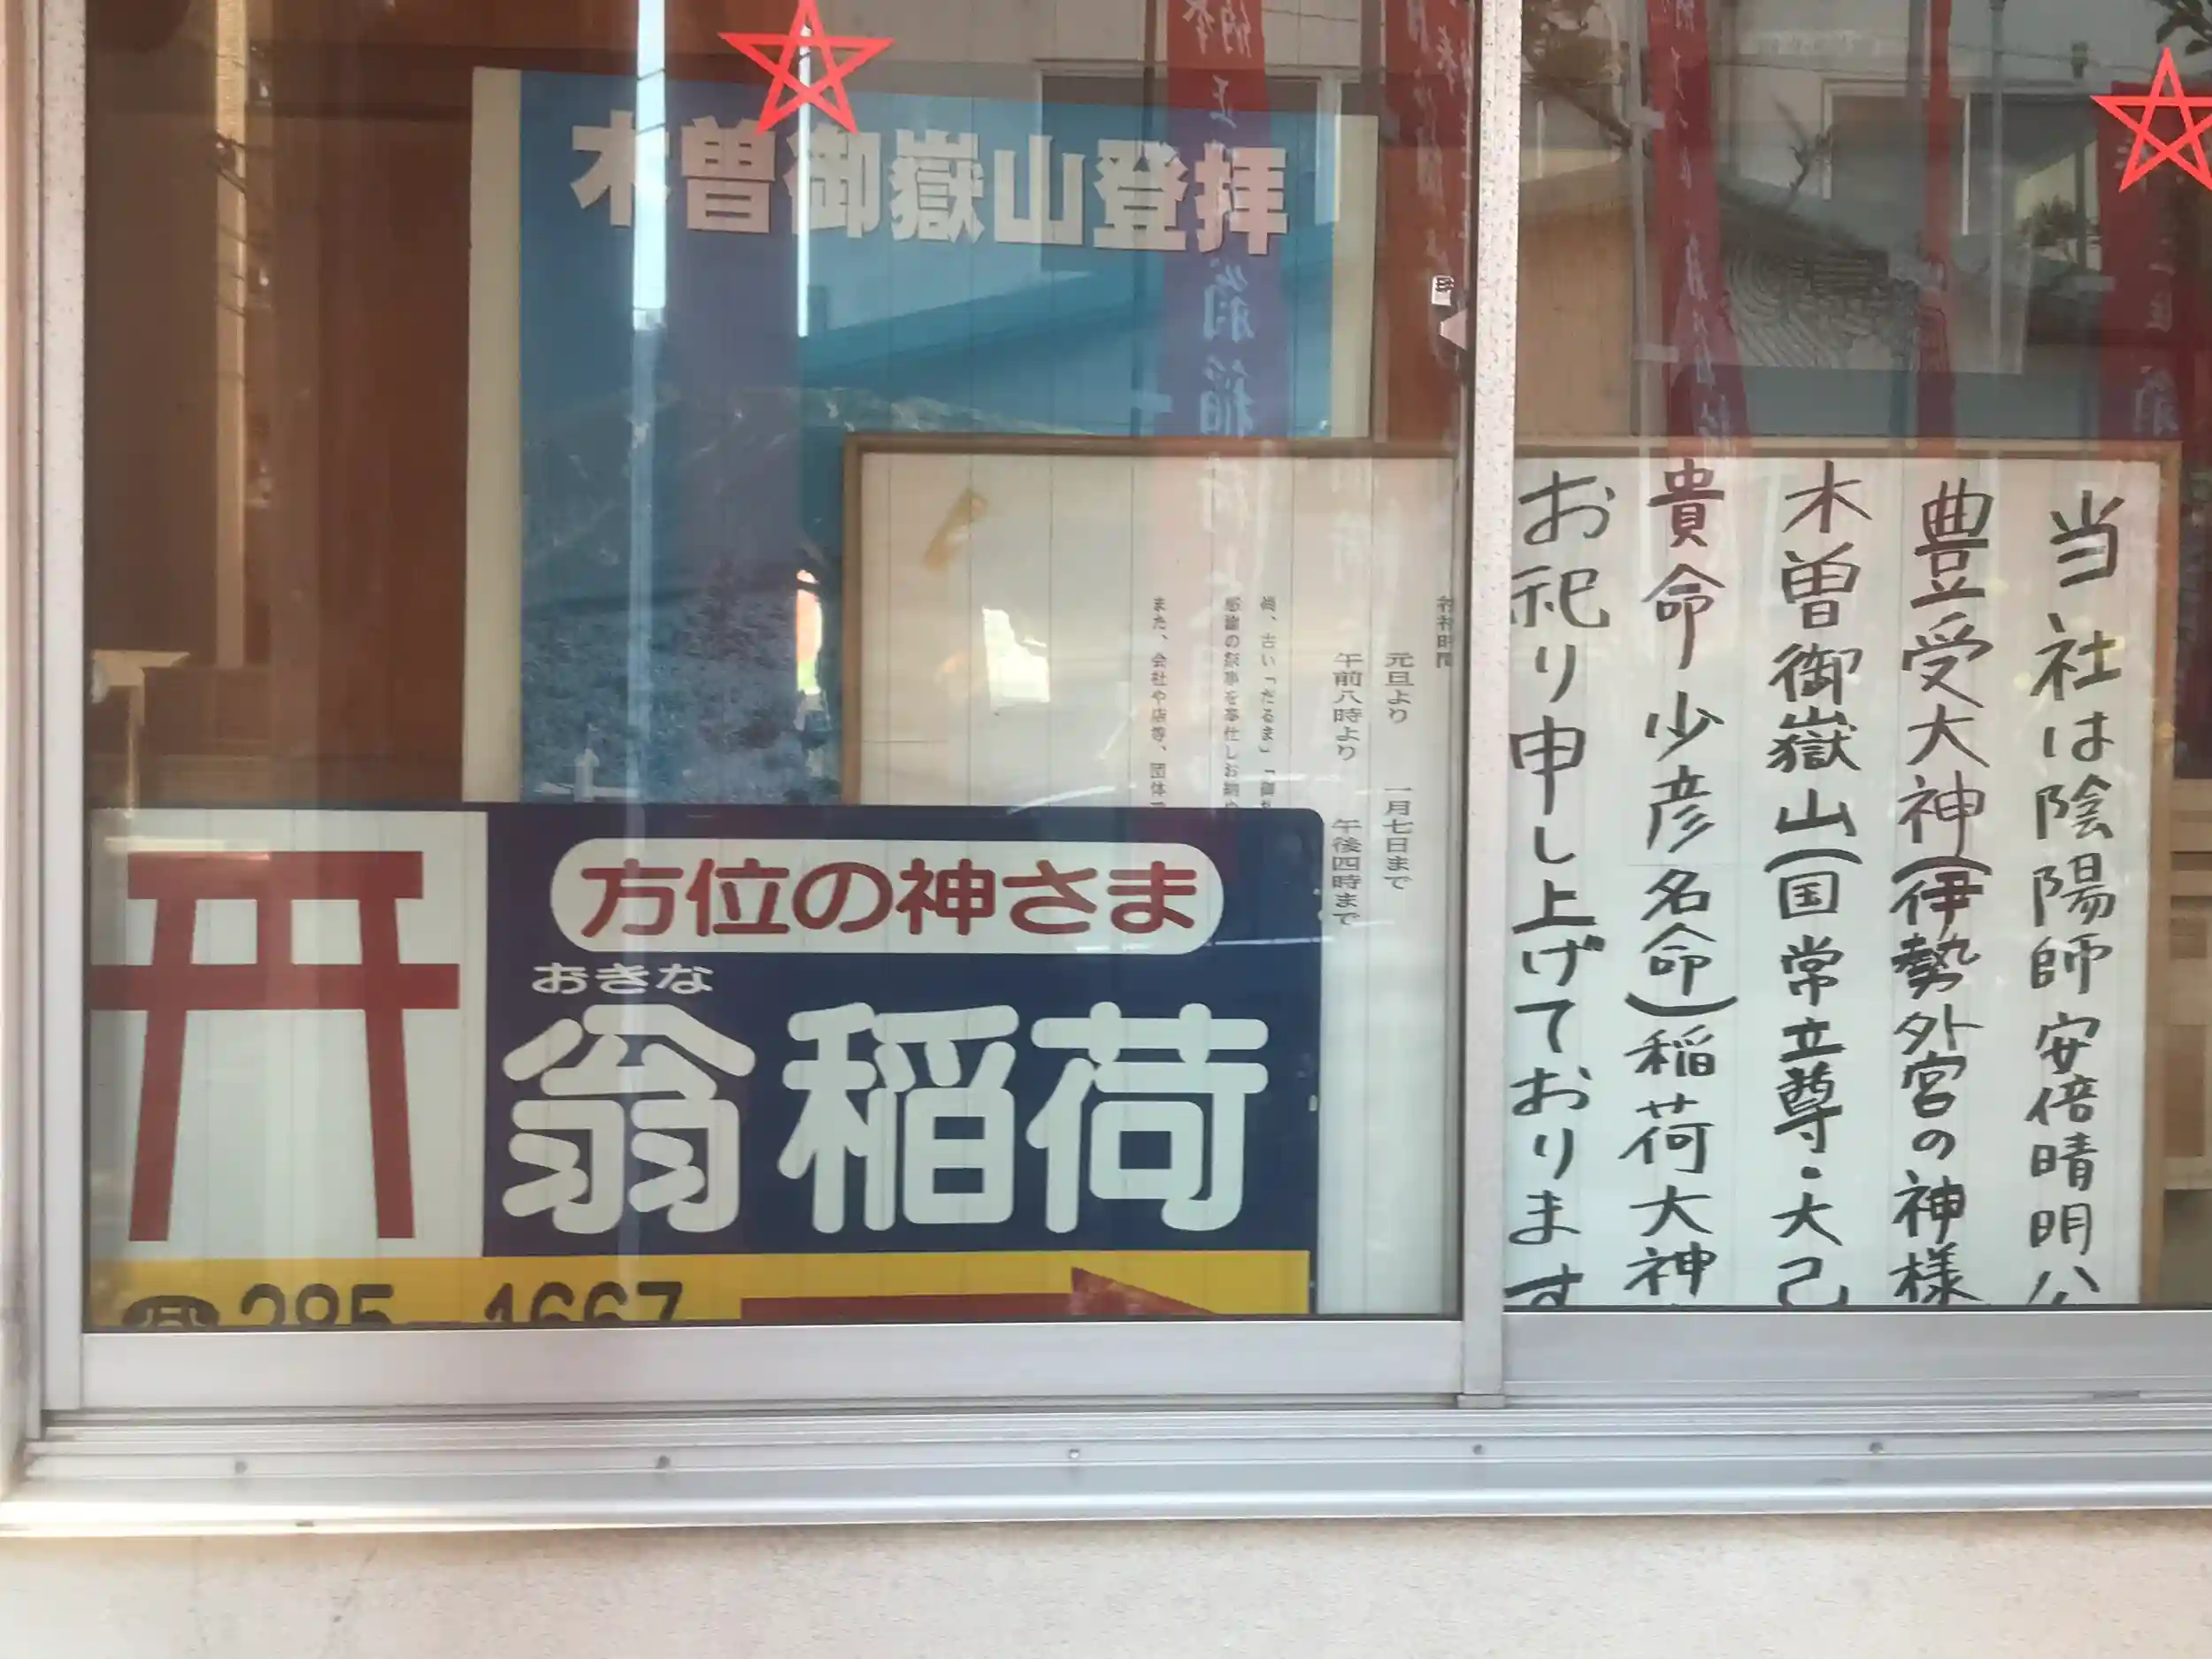 木曽御嶽山登拝
元旦より 一月七日まで
午前八時より 午後四時まで
尚、古い「だるま」「御札
感謝の祭事を奉仕しお納め
また、会社や店等、団体で
方位の神さま
おきな
翁稲荷
285-1667
当社は陰陽師安倍晴明公
豊受大神(伊勢外宮の神様
木曽御嶽山(国常立尊・大己
貴命少彦名命)稲荷大神
お祀り申し上げております